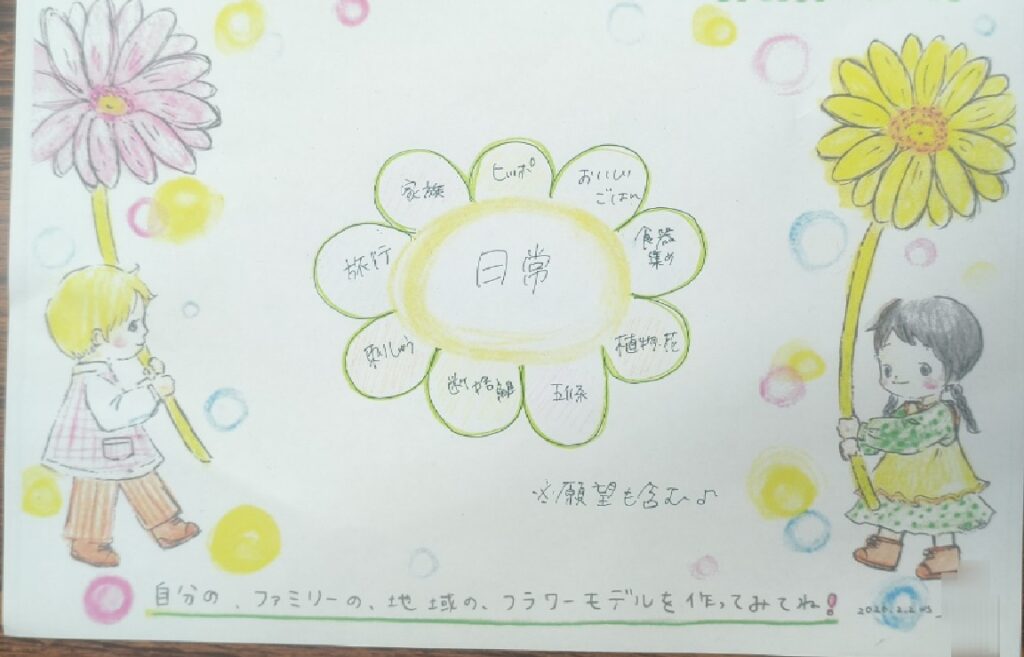 家族
ヒッポ
おいしい
ごはん
食器
集め
旅行
日常
刺しゅう
植物・花
※願望も含む♪
自分の、ファミリーの、地域の、フラワーモデルを作ってみてね!